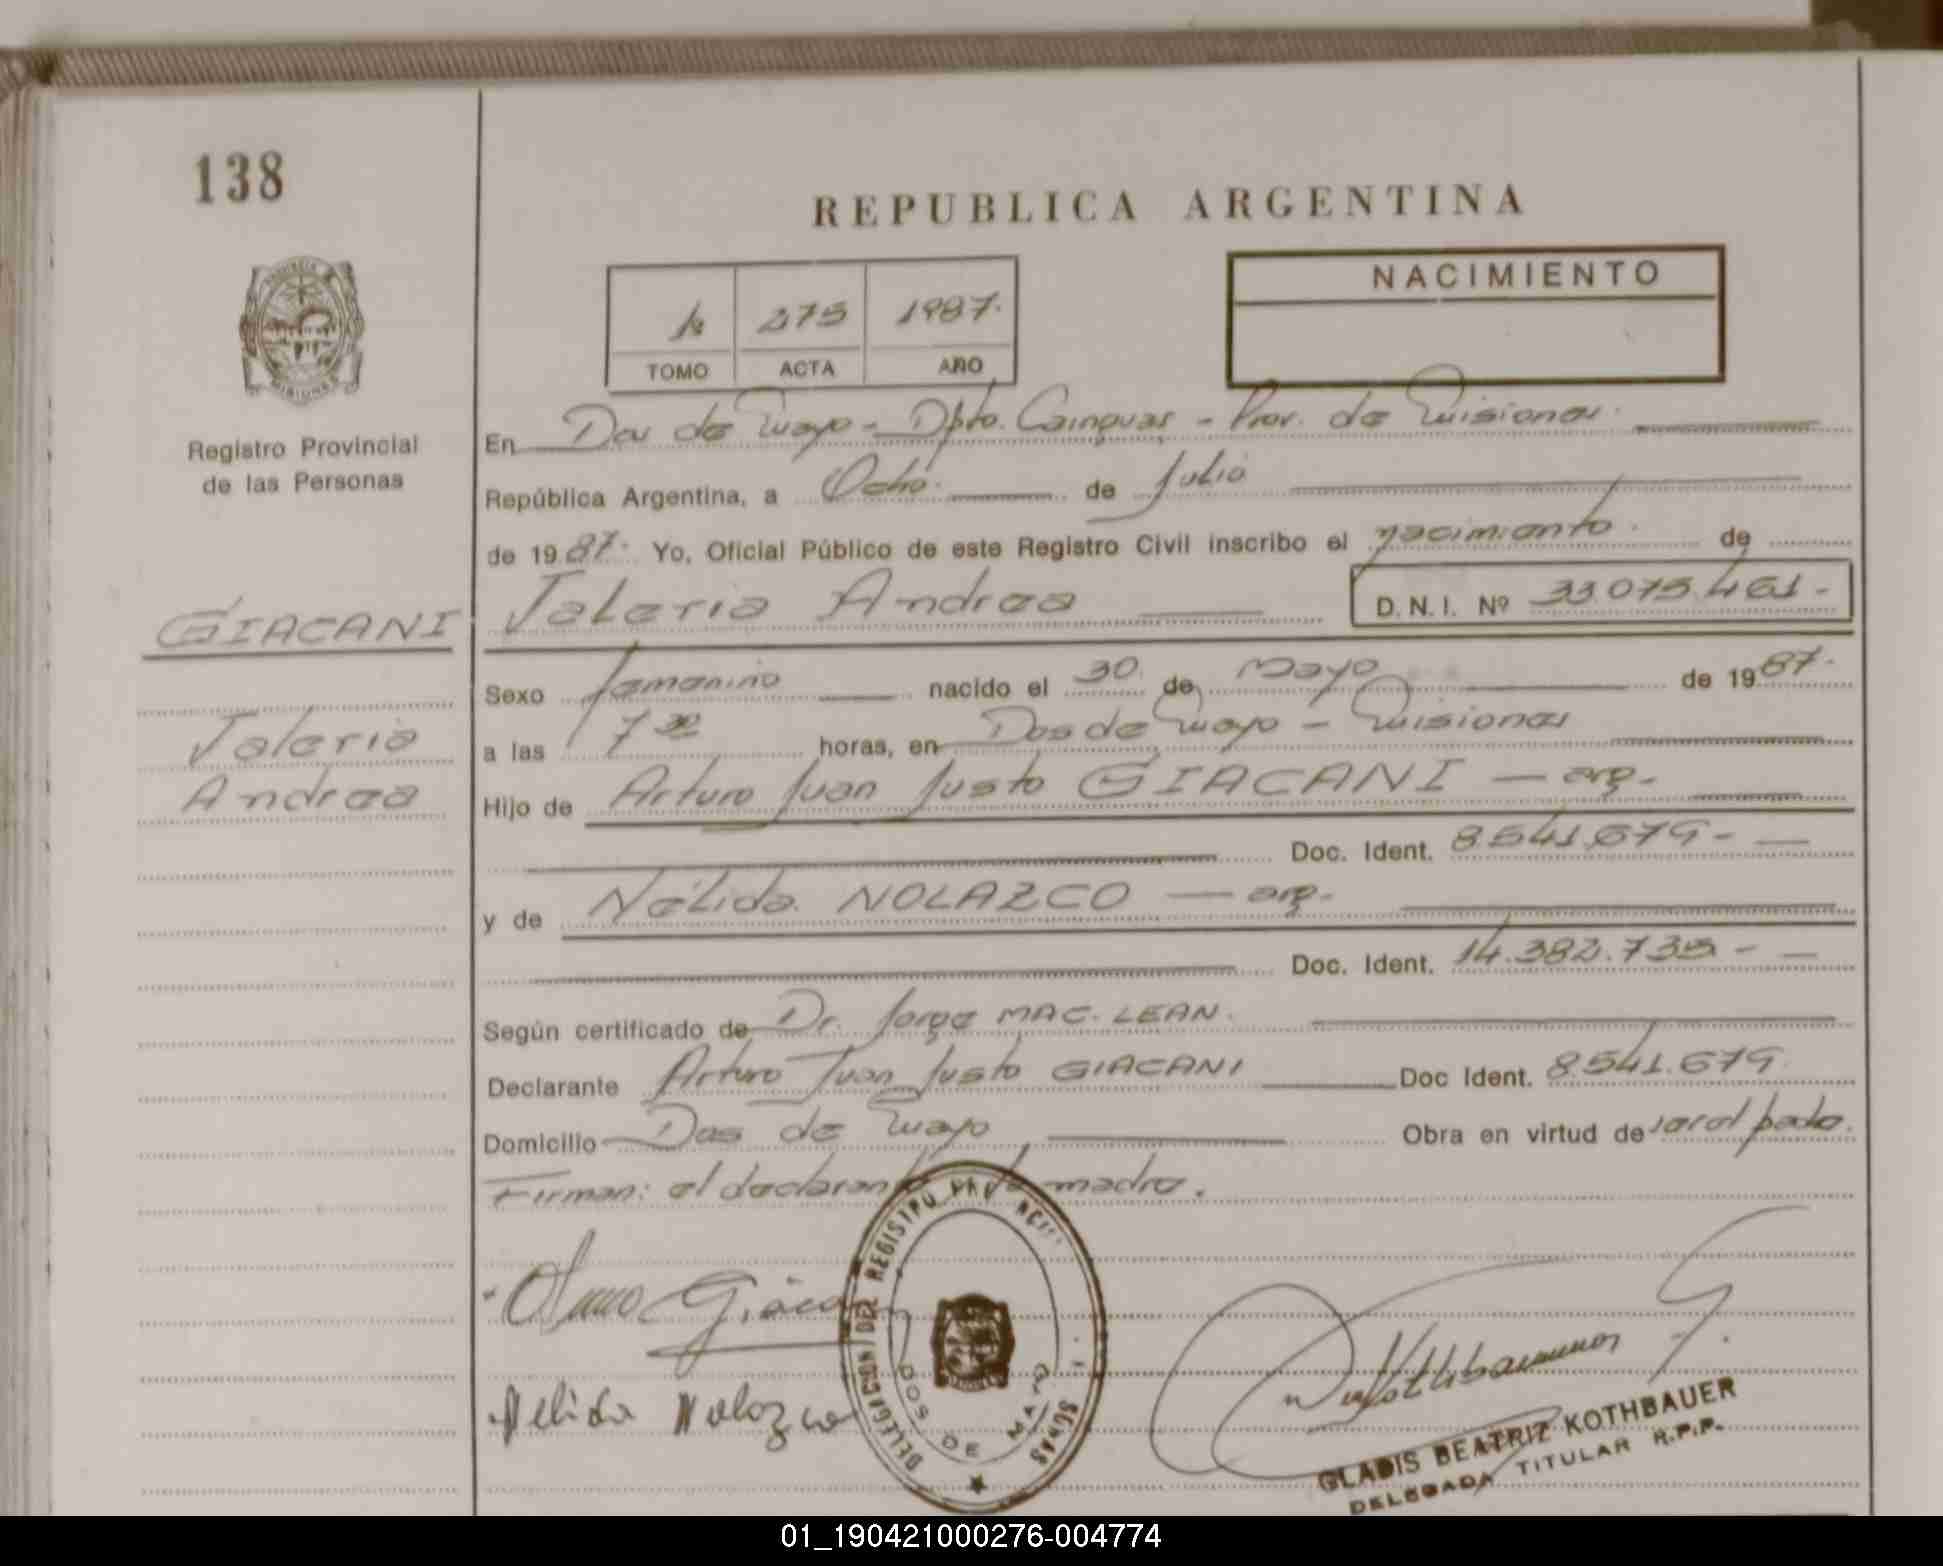 138
REPUBLICA ARGENTINA
NACIMIENTO
275 1987.
TOMO ACTA AÑO
Registro Provincial
de las Personas
En Dos de Mayo - Dpto. Cainguas - Prov. de Misiones.
República Argentina, a Ocho. de Julio
de 1987. Yo, Oficial Público de este Registro Civil inscribo el nacimiento. de
GIACANI Valeria Andrea D.N.I. Nº 33.075.461.-
Sexo femenino nacido el 30. de Mayo de 1987.
Valeria
a las 7 30 horas, en Dos de Mayo - Misiones
Andrea
Hijo de Arturo Juan Justo GIACANI - arg.
Doc. Ident. 8.541.679 - -
y de Nélida NOLAZCO - arg.
Doc. Ident. 14.382.735 - -
Según certificado de Dr. Jorge MAC. LEAN.
Declarante Arturo Juan Justo GIACANI Doc Ident. 8.541.679.
Domicilio Dos de Mayo Obra en virtud de
Firman: el declarante madre.
Giacani
Nelida Nolazco
DELEGACION DEL REGISTRO
DOS DE MAYO
GLADIS BEATRIZ KOTHBAUER
DELEGADA TITULAR R.P.P.
01_190421000276-004774